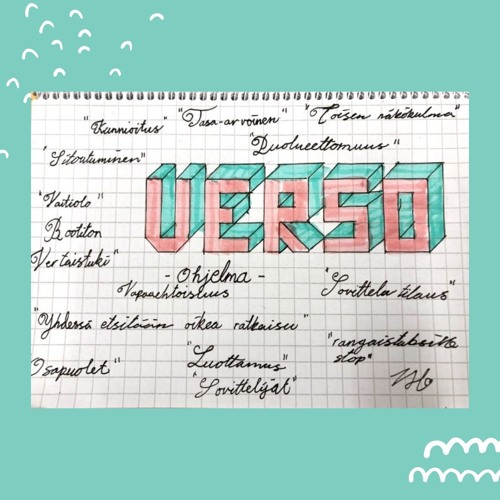 "Kunnioitus" "Tasa-arvoinen" "Toisen näkökulma"
"Puolueettomuus"
"Sitoutuminen"
VERSO
"Vaitiolo"
Vertaistuki"
- Ohjelma -
Vapaaehtoisuus
"Sovittelu tilaus"
"Yhdessä etsitään oikea ratkaisu"
Osapuolet" "Luottamus"
stop"
"Sovittelijat"